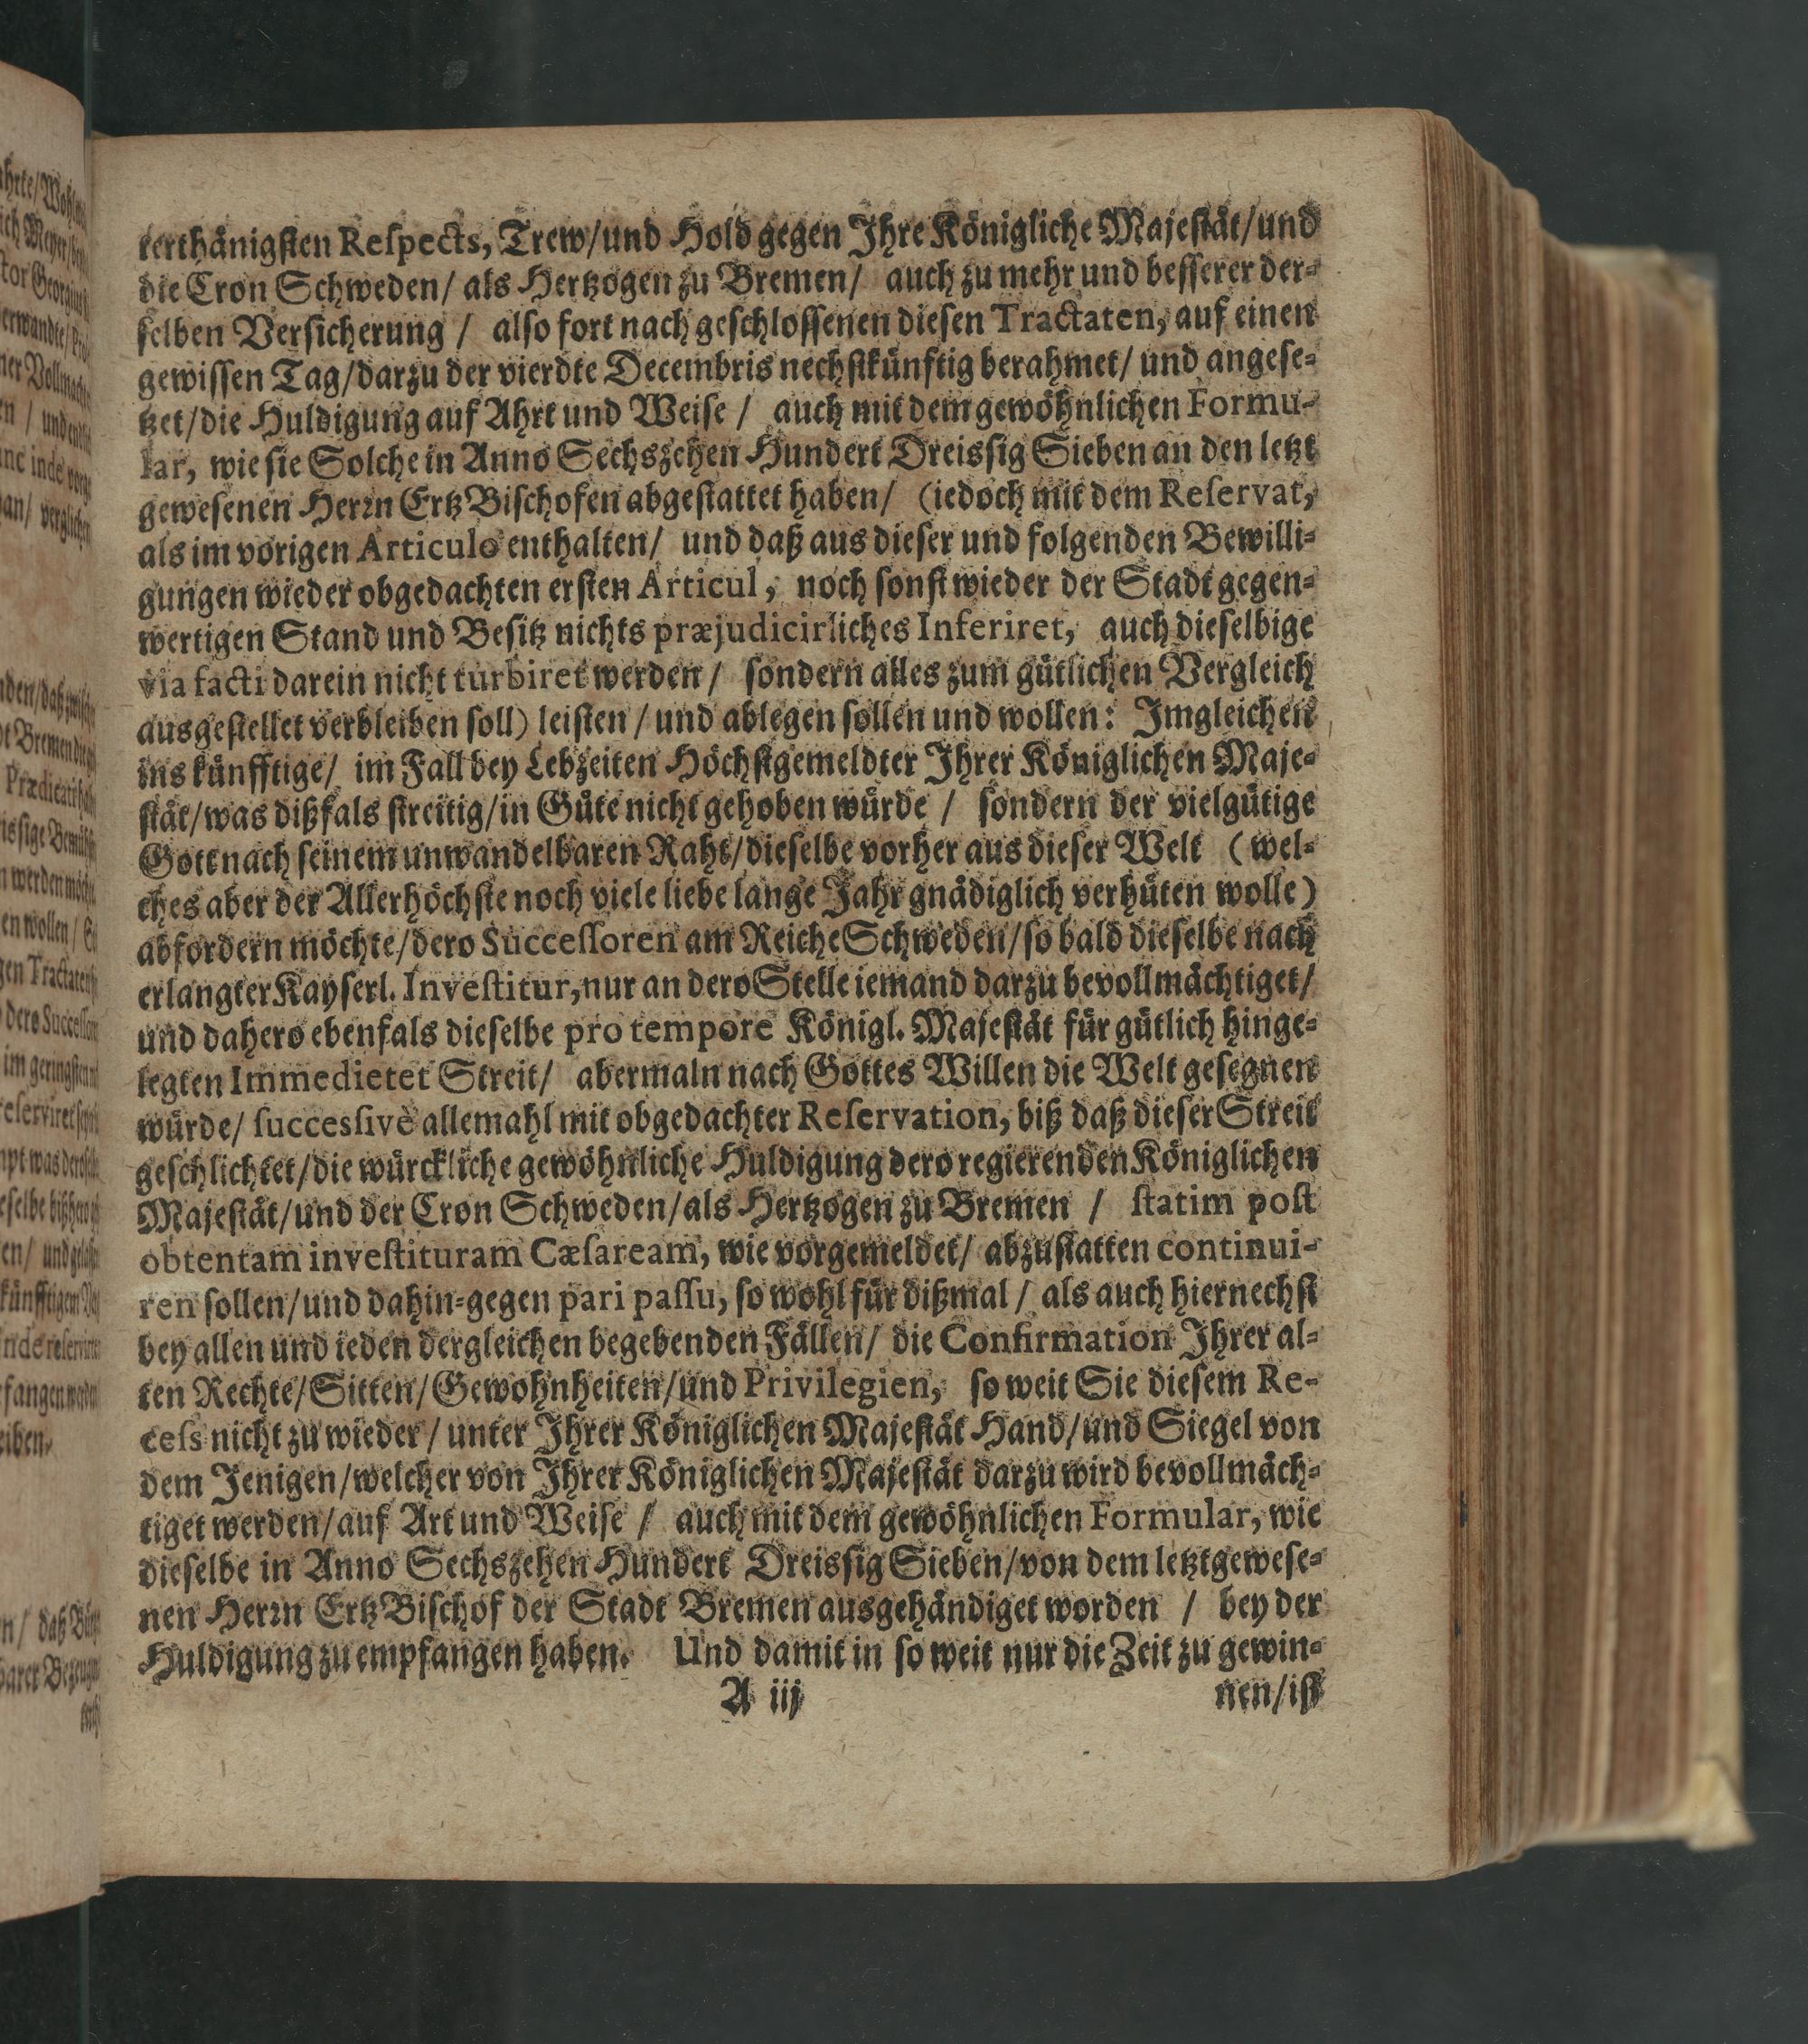 terthänigsten Reſpects, Trew/und Hold gegen Ihre Königliche Majestät/und
die Cron Schweden/ als Hertzogen zu Bremen/ auch zu mehr und besserer der-
selben Versicherung / also fort nach geschlossenen diesen Tractaten, auf einen
gewissen Tag/darzu der vierdte Decembris nechstkünftig berahmet/ und angese-
tzet/die Huldigung auf Ahrt und Weise / auch mit dem gewöhnlichen Formu-
lar, wie sie Solche in Anno Sechszehen Hundert Dreissig Sieben an den letzt
gewesenen Herrn Ertz Bischofen abgestattet haben/ (iedoch mit dem Reſervat,
als im vorigen Articulo enthalten/ und daß aus dieser und folgenden Bewilli-
gungen wieder obgedachten ersten Articul, noch sonst wieder der Stadt gegen-
wertigen Stand und Besitz nichts præjudicirliches Inferiret, auch dieselbige
via facti darein nicht turbiret werden/ sondern alles zum gütlichen Vergleich
ausgestellet verbleiben soll) leisten / und ablegen sollen und wollen: Imgleichen
ins künfftige/ im Fall bey Lebzeiten Höchstgemeldter Ihrer Königlichen Maje-
stät/was dißfals streitig/in Güte nicht gehoben würde / sondern der vielgütige
Gott nach seinem unwandelbaren Raht/dieselbe vorher aus dieser Welt (wel-
ches aber der Allerhöchste noch viele liebe lange Jahr gnädiglich verhüten wolle)
abfordern möchte/dero Succeſſoren am Reiche Schweden/so bald dieselbe nach
erlangter Kayserl. Inveſtitur, nur an dero Stelle iemand darzu bevollmächtiget/
und dahero ebenfals dieselbe pro tempore Königl. Majestät für gütlich hinge-
legten Immedietet Streit/ abermaln nach Gottes Willen die Welt gesegnen
würde/ ſuccesſivè allemahl mit obgedachter Reſervation, biß daß dieser Streit
geschlichtet/die würckliche gewöhnliche Huldigung dero regierenden Königlichen
Majestät/und der Cron Schweden/als Hertzogen zu Bremen / ſtatim poſt
obtentam inveſtituram Cæſaream, wie vorgemeldet/ abzustatten continui-
ren sollen/und dahin-gegen pari paſſu, so wohl für dißmal / als auch hiernechst
bey allen und ieden dergleichen begebenden Fällen/ die Confirmation Ihrer al-
ten Rechte/Sitten/Gewohnheiten/und Privilegien, so weit Sie diesem Re-
ceſs nicht zu wieder/ unter Ihrer Königlichen Majestät Hand/und Siegel von
dem Jenigen/welcher von Ihrer Königlichen Majestät darzu wird bevollmäch-
tiget werden/auf Art und Weise / auch mit dem gewöhnlichen Formular, wie
dieselbe in Anno Sechszehen Hundert Dreissig Sieben/von dem letztgewese-
nen Herrn Ertz Bischof der Stadt Bremen ausgehändiget worden / bey der
Huldigung zu empfangen haben. Und damit in so weit nur die Zeit zu gewin-
A iij nen/ist